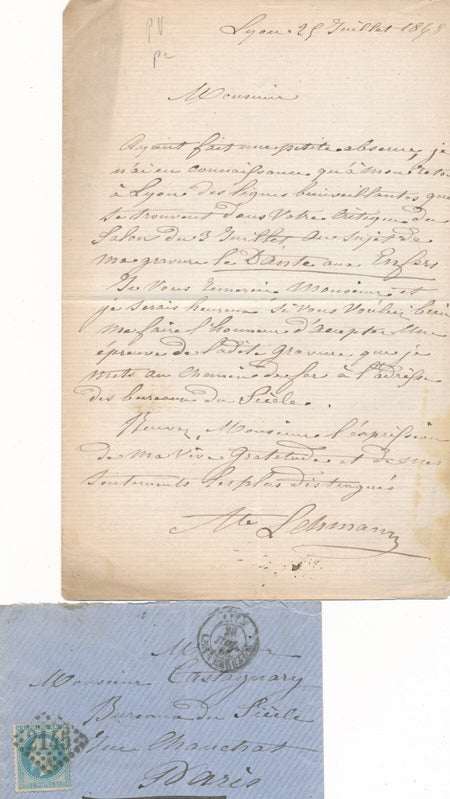 PV
Lyon. 25 Juillet 1868
Monsieur
Ayant fait une petite absence, je
n'ai eu connaissance qu'à mon retou
à Lyon des lignes bienveillantes que
se trouvent dans Votre Critique du
Salon du 3 Juillet, au sujet de
ma gravure le Dante aux Enfers
Je Vous remercie Monsieur et
je serais heureux si vous Vouliez bien
me faire l'honneur d'accepter Une
épreuve de ladite gravure que je
mets au chemin de fer à l'adresse
des bureaux du Siècle.
Recevez, Monsieur l'expression
de ma Vive Gratitude et de mes
sentements les plus distingués
Ate Lehmann
Monsieur
Monsieur Castagnary
Bureaux du Siècle
Rue Chauchat
Paris